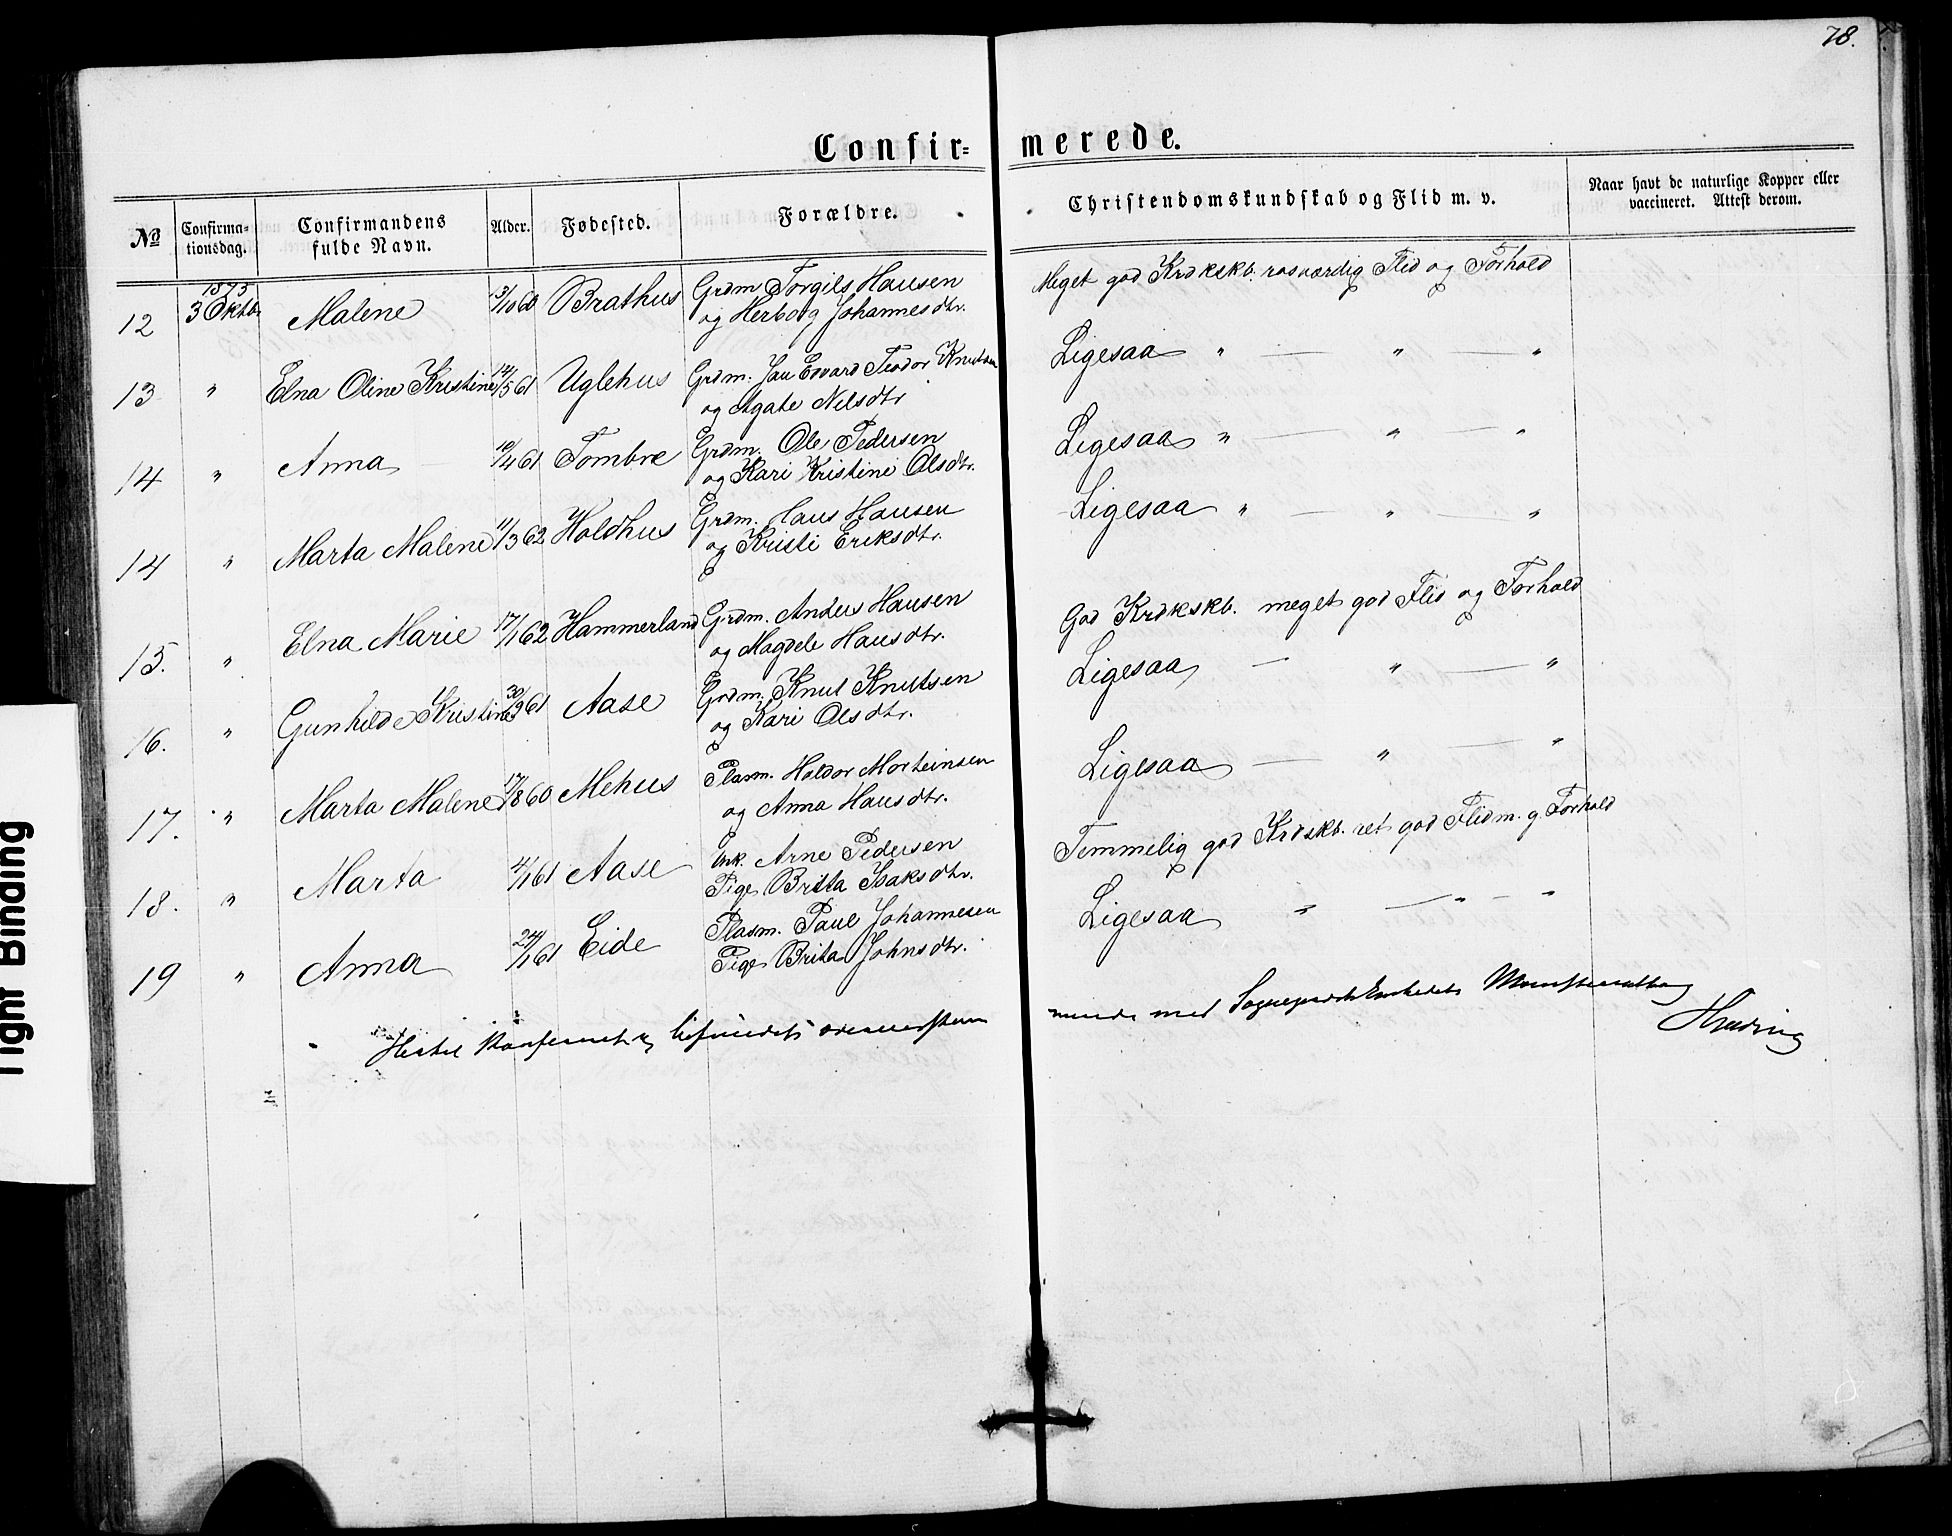 78.
Confir- merede.
No
Confirma-
tionsdag.
Confirmandens
fulde Navn.
Alder.
Fødested.
Forældre.
Christendomskundskab og Flid m. v.
Naar havt de naturlige Kopper eller
vaccineret. Attest derom.
1875
12 3 Oktbr Malene 13/10 60 Brathus Grdm Torgils Hansen
og Herborg Johannesdtr.
Meget god Krdkskb. rosværdig Flid og Forhold
13 " Elna Oline Kristine 14/5 61 Uglehus Grdm. Jan Edvard Teodor Knutsen
og Agate Nilsdtr
Ligesaa " — " — "
14 " Anna 10/4 61 Tombre Grdm. Ole Pedersen
og Kari Kristine Olsdtr.
Ligesaa " — " — "
14 " Marta Malene 11/3 62 Holdhus Grdm. Hans Hansen
og Kristi Eriksdtr.
Ligesaa " — " — "
15. " Elna Marie 17/1 62 Hammerland Grdm. Anders Hansen
og Magdele Hansdtr.
God Krdkskb. meget god Flid og Forhold
16. " Gunhilde Kristine 30/9 61 Aase Grdm. Knut Knutsen
og Kari Olsdtr.
Ligesaa — " — "
17. " Marta Malene 17/8 60 Mehus Plasm. Haldor Morteinsen
og Anna Hansdtr.
Ligesaa — " — "
18. " Marta 4/1 61 Aase Enk. Arne Pedersen
Pige Britta Isaksdtr.
Temmelig god Krdskb. ret god Flid m. g. Forhold
19 " Anna 24/1 61 Eide Plasm. Paul Johannesen
Pige Brita Johnsdtr.
Ligesaa " — " — "
Hertil konfereret og befundet overensstem mende med Sognepræst Ministerialbog
Tight Binding